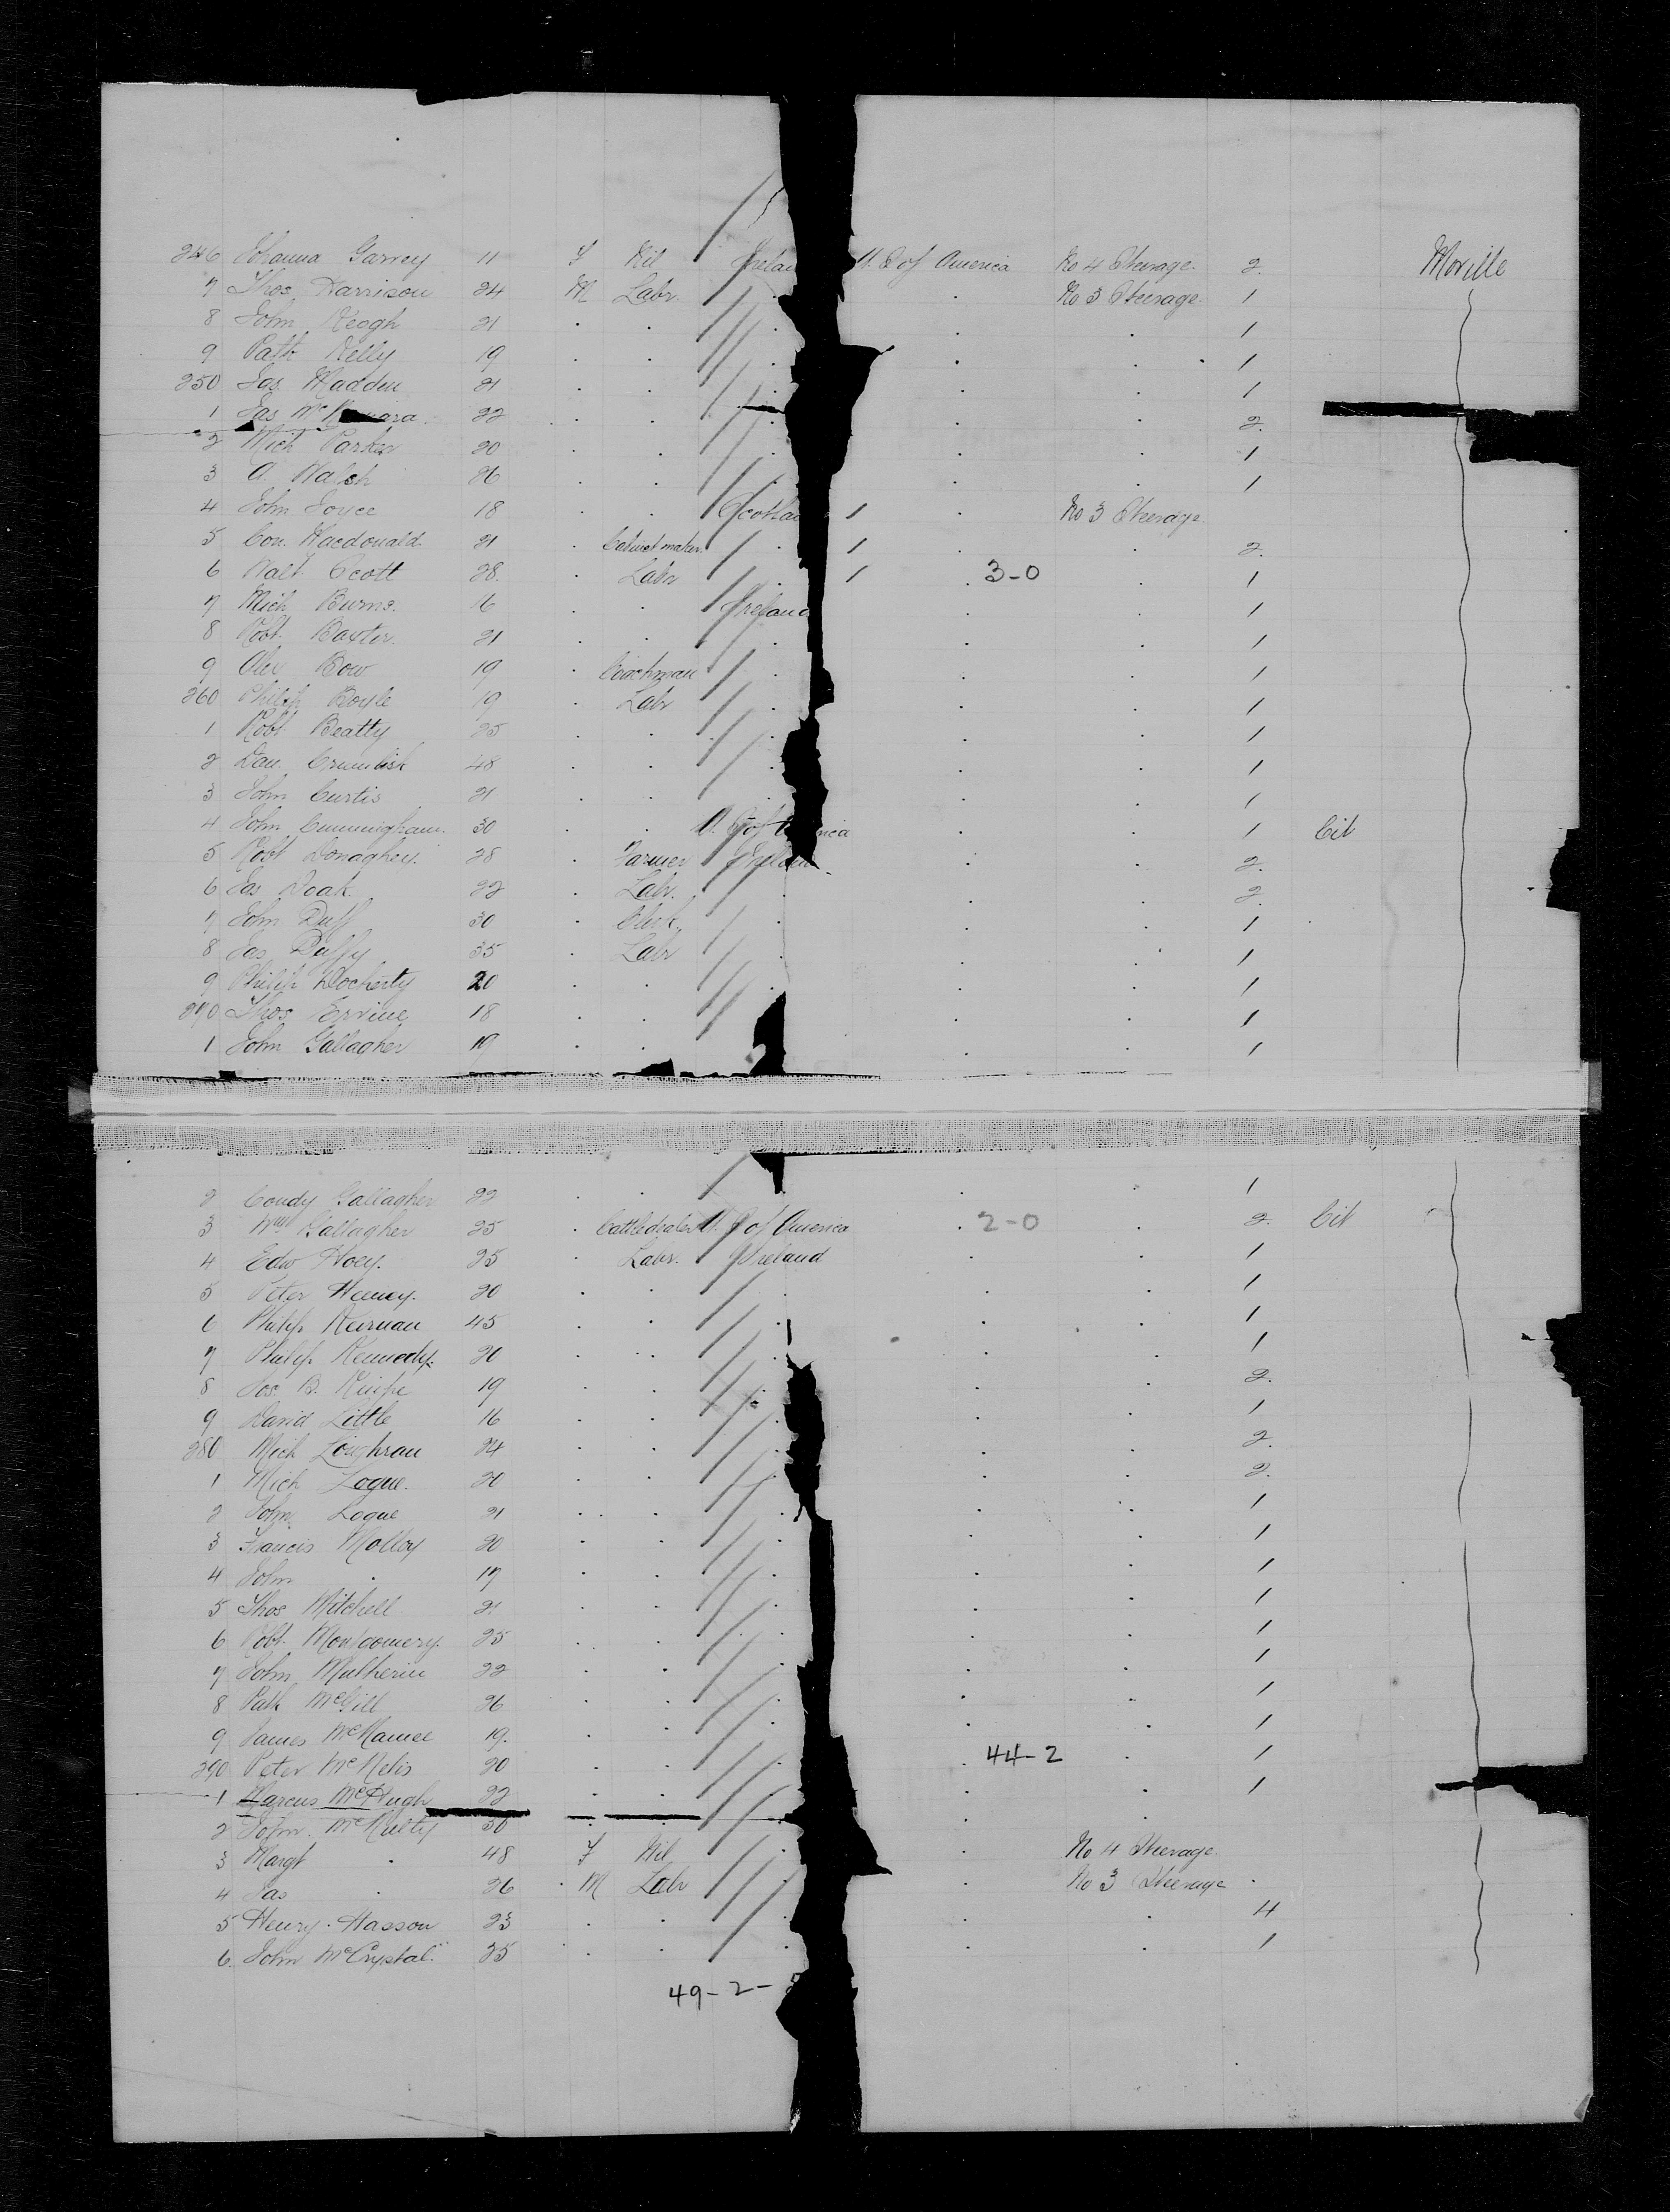 246 Johanna Garvey 11 F Nil Irelan U. S of America No 4 Steerage. 2. Moville
7 Thos. Harrison 24 M Labr. . . No 3 Steerage. 1
8 John Keogh 21 . . . . . 1
9 Patk Kelly 19 . . . . . 1
250 Jas. Madden 21 . . . . . 1
1 Jas Mc 22 . . . . . 2.
2 Mich Parker 20 . . . . . 1
3 A. Walsh 26 . . . . . 1
4 John Joyce 18 . . Scotlan 1 . No 3 Steerage
5 Con. Macdonald. 21 . Cabinet maker. . 1 . . 2.
6 Walt. Scott 28. . Labr . 1 . 3-0 . 1
7 Mich Burns. 16 . . Ireland . . 1
8 Robt. Baxter. 21 . . . . . 1
9 Alex Bow 19 . Coachman . . . 1
260 Philip Boyle 19 . Labr . . . 1
1 Robt. Beatty 25 . . . . . 1
2 Dan. Crumlish 48 . . . . . 1
3 John Curtis 21 . . . . . 1
4 John Cunningham. 30 . . U. S of A rica . . 1 Cit
5 Robt Donaghey. 28 . Farmer Ireland . . 2.
6 Jas Doak 22 . Labr. . . . 2
7 John Duff 30 . Clerk. . . . 1
8 Jas Duffy 35 . Labr . . . 1
9 Philip Docherty 20 . . . . . 1
270 Thos Ervine 18 . . . . . 1
1 John Gallagher 19 . . . . 1
2 Condy Gallagher 22 . . . . . 1
3 Wm Gallagher 25 . Cattledealer U. S of America . 2-0 . 2. Cit
4 Edw Hoey. 25 . Labr. Ireland . . 1
5 Peter Heeney. 20 . . . . . 1
6 Philip Keirnan 45 . . . . . 1
7 Philip Kennedy. 20 . . . . . 1
8 Jos. B. 19 . . . . . 2.
9 David Little 16 . . . . . 1
280 Mich Loughran 24 . . . . . 2.
1 Mich Logue. 20 . . . . . 2.
2 John Logue 21 . . . . . 1
3 Francis Molloy 20 . . . . . 1
4 John . 17 . . . . . 1
5 Thos Mitchell 21 . . . . . 1
6 Robt. Montgomery. 25 . . . . . 1
7 John Mulherin 22 . . . . . 1
8 Patk McGill 26 . . . . . 1
9 James McNamee 19. . . . . . 1
290 Peter McNelis 20 . . . . 44-2 . 1
1 Marcus McHugh 22 . . . . . 1
2 John. McNulty 50 . . . . .
3 Margt . 48 F Nil . . No 4 Steerage.
4 Jas . 26 . M Labr . . No 3 Steerage .
5 Henry. Hasson 23 . . . . . 4
6. John McCrystal. 35 . . . . . 1
49-2-